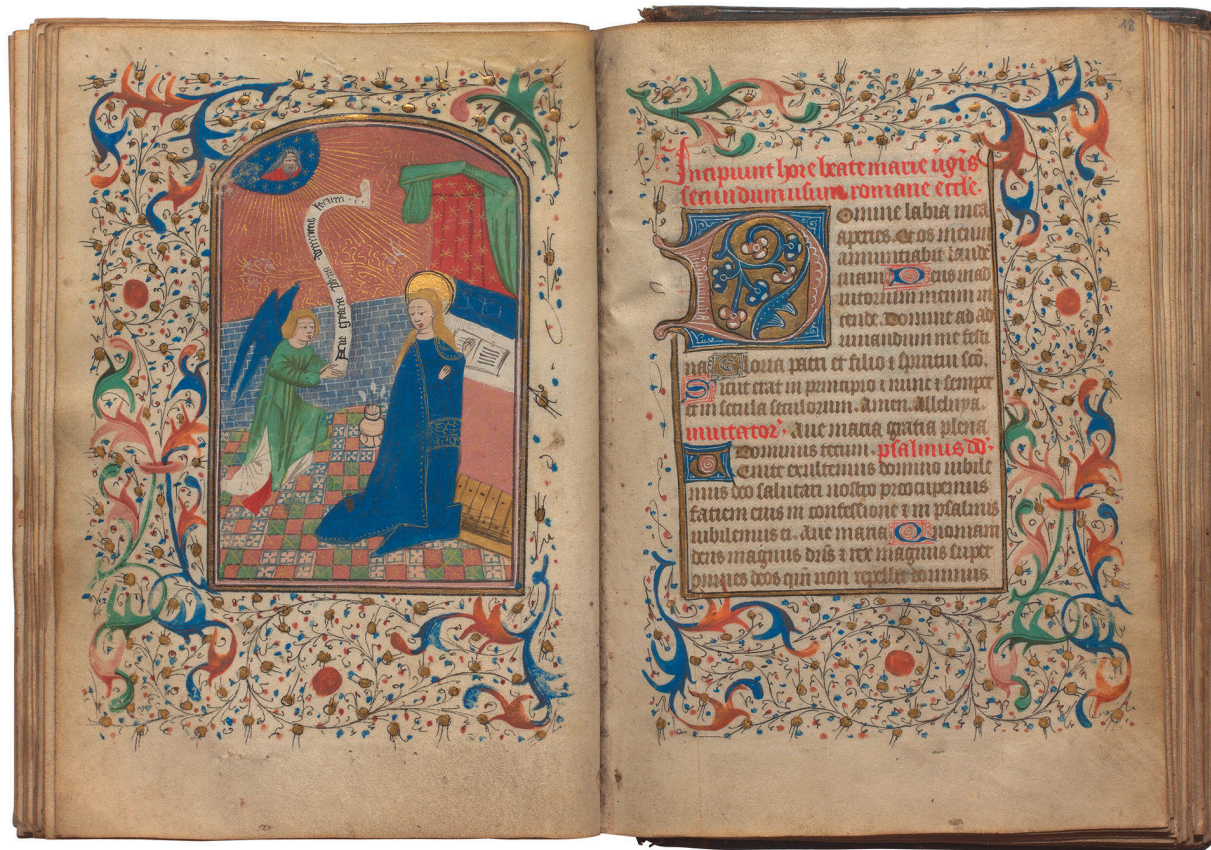 Aue gracia plena dominus tecum
18
Incipiunt hore beate marie ūgīs
secundum usum romane eccle.
Domine labia mea
aperies. Et os meum
annuntiabit laudē
tuam. Deus in ad
iutorium meum in
tende. Domine ad ad
iuuandum me festi
na. Gloria patri et filio ⁊ spiritui scō.
Sicut erat in principio ⁊ nunc ⁊ semper
et in secula seculorum. Amen. Alleluya.
inuitator̄. Aue maria gratia plena
Dominus tecum. psalmus dd̄.
Uenite exultemus domino iubile
mus deo salutari nostro preocupemus
faciem eius in confessione ⁊ in psalmis
iubilemus ei. Aue maria. Quoniam
deus magnus dn̄s ⁊ rex magnus super
omnes deos qm̄ non repellet dominus